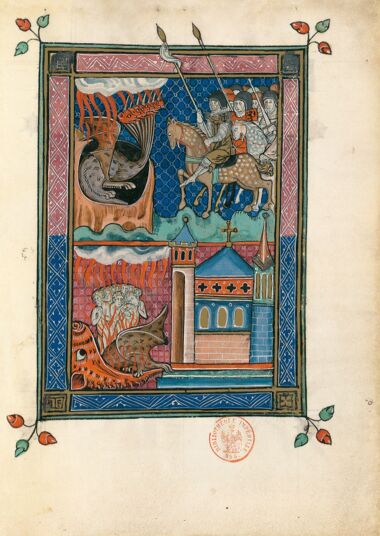 BIBLIOTHEQUE IMPERIALE